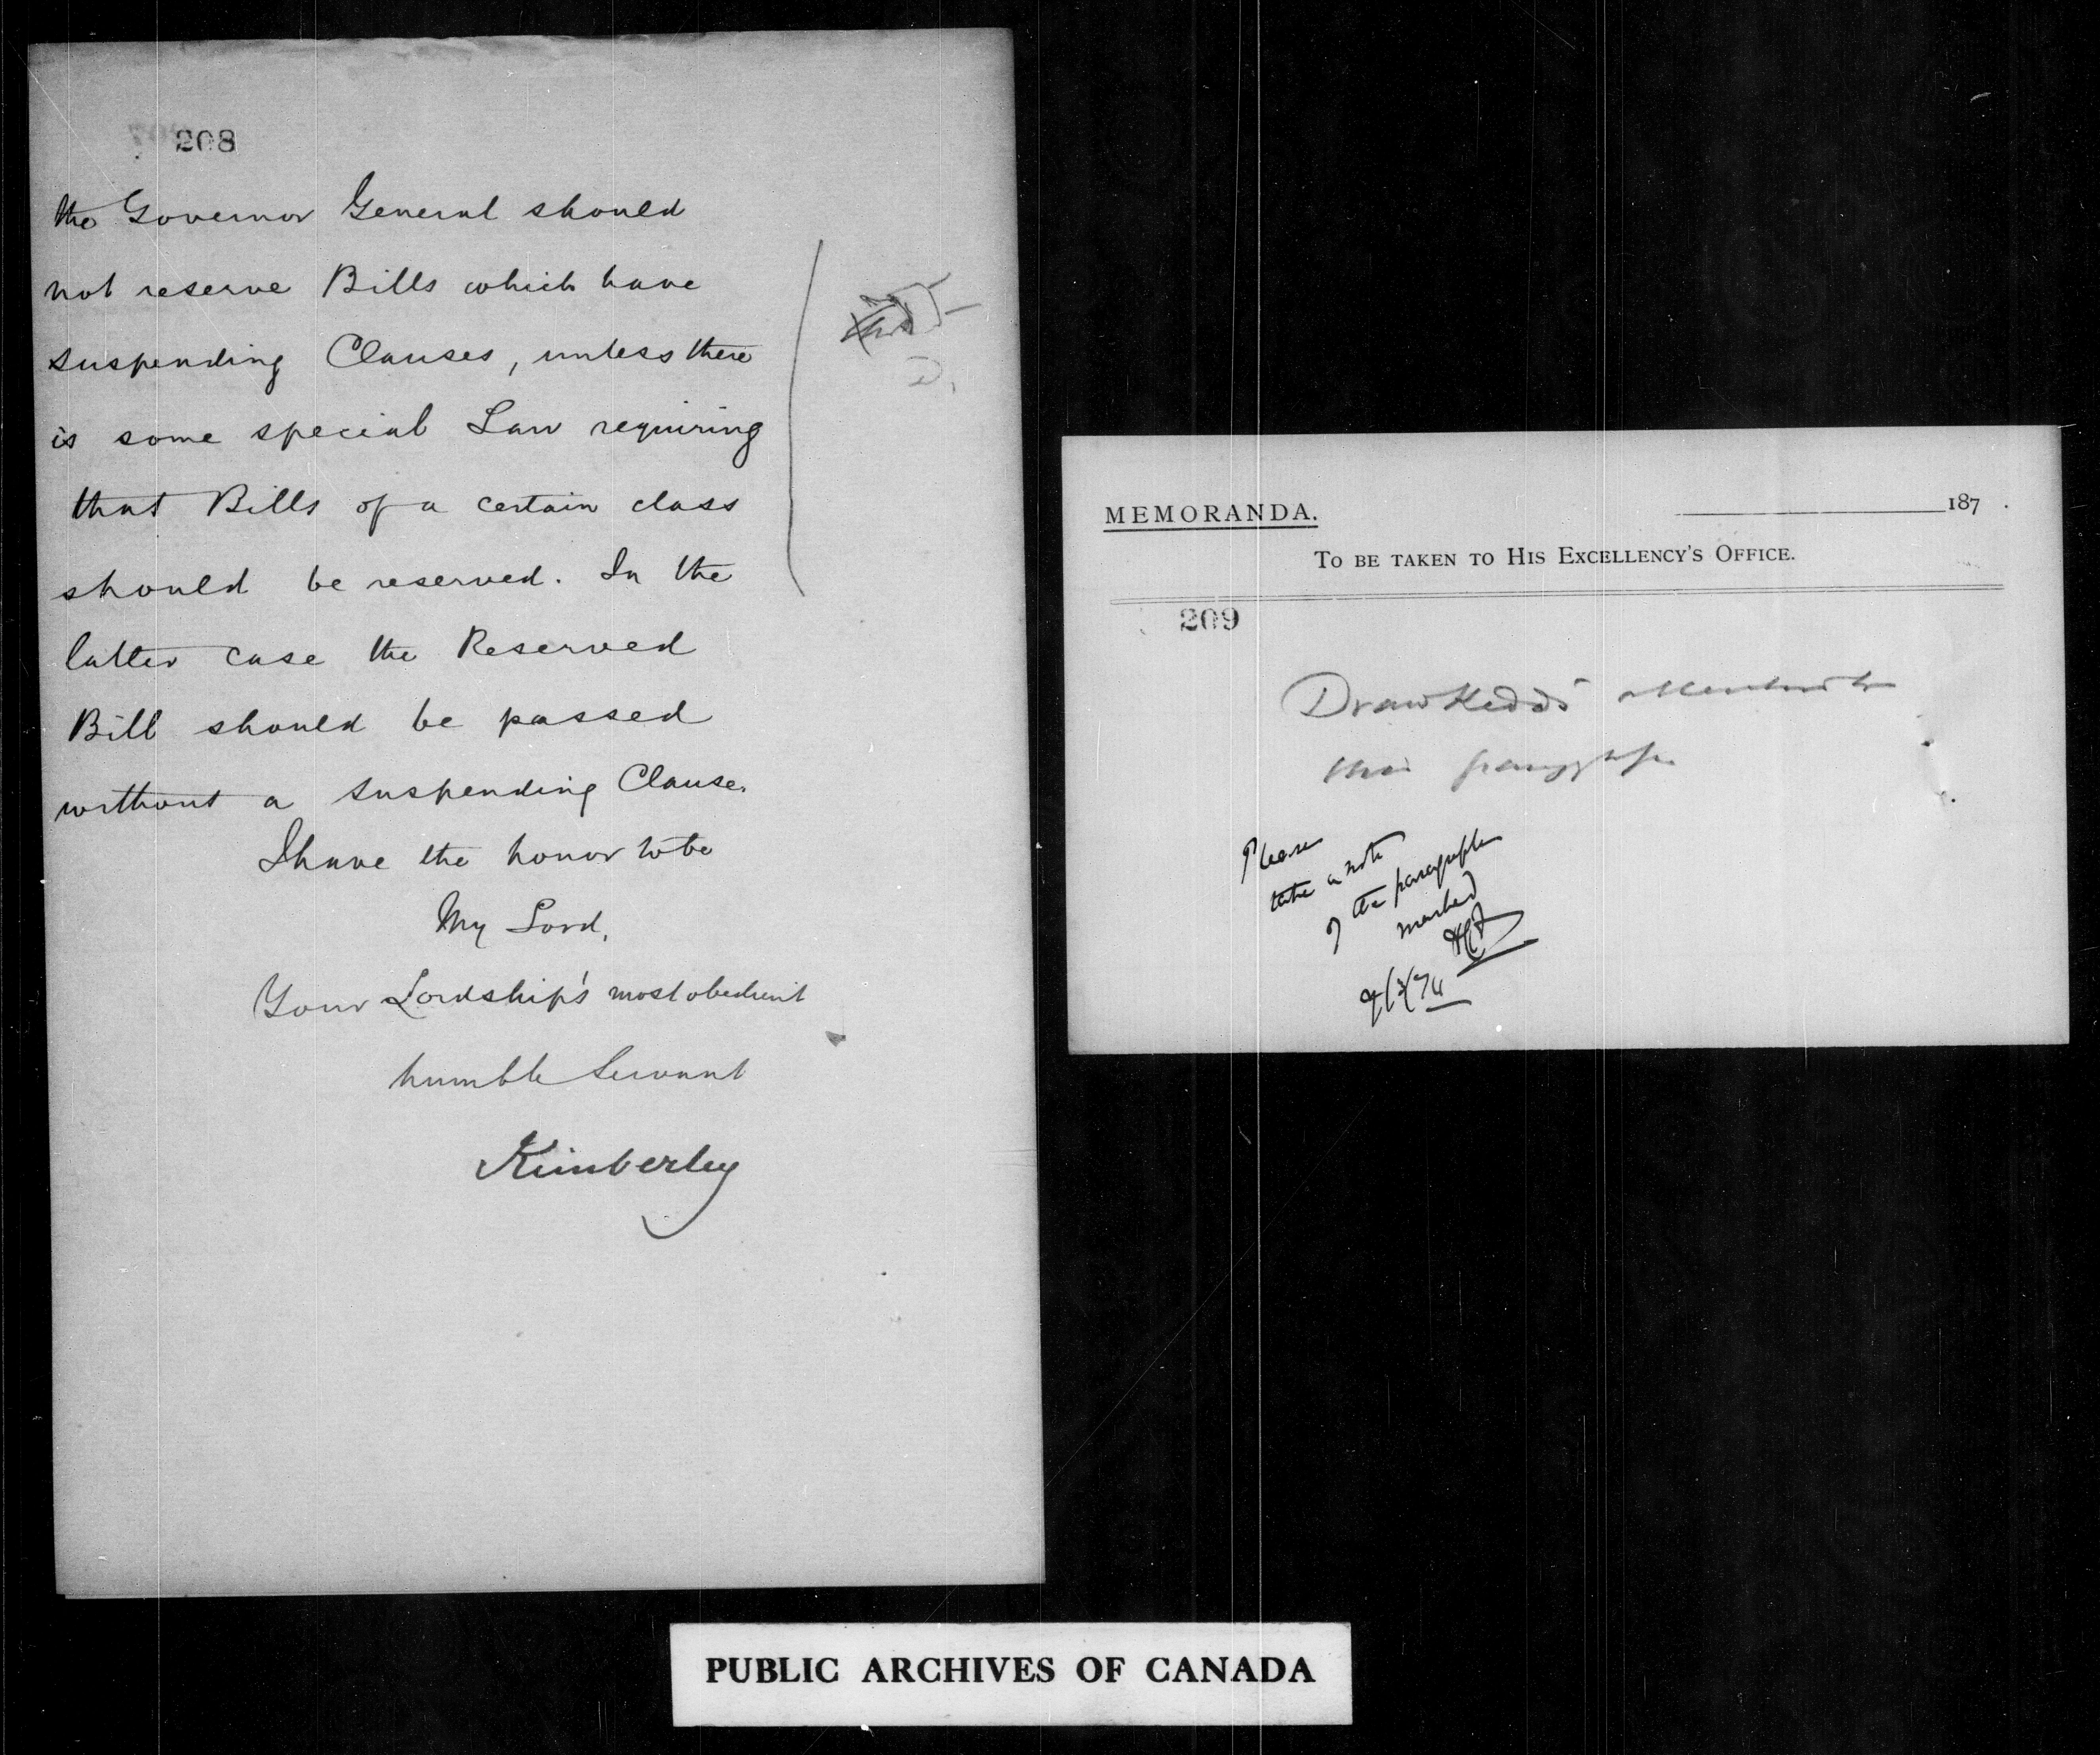 208
the Governor General should
not reserve Bills which have
suspending Clauses, unless there
is some special Law requiring
that Bills of a certain class
should be reserved. In the
latter case the Reserved
Bill should be passed
without a suspending Clause.
I have the honor to be
My Lord,
Your Lordship's most obedient
humble Servant
Kimberley
MEMORANDA.
187 .
TO BE TAKEN TO HIS EXCELLENCY'S OFFICE.
209
Draw attention to
this paragraph
Please
take a note
of the paragraph
marked
PUBLIC ARCHIVES OF CANADA